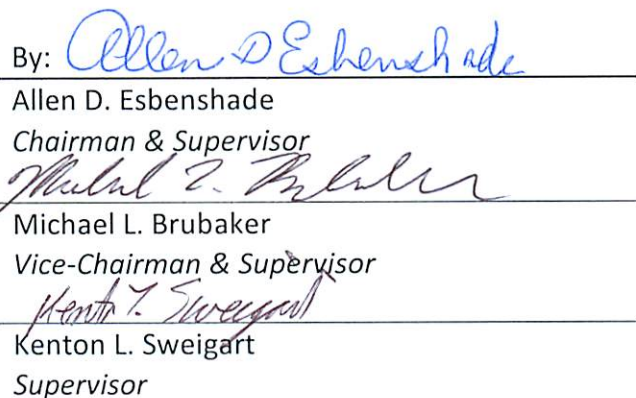 By: Allen D Esbenshade
Allen D. Esbenshade
Chairman & Supervisor
Michael L. Brubaker
Michael L. Brubaker
Vice-Chairman & Supervisor
Kenton L. Sweigart
Kenton L. Sweigart
Supervisor